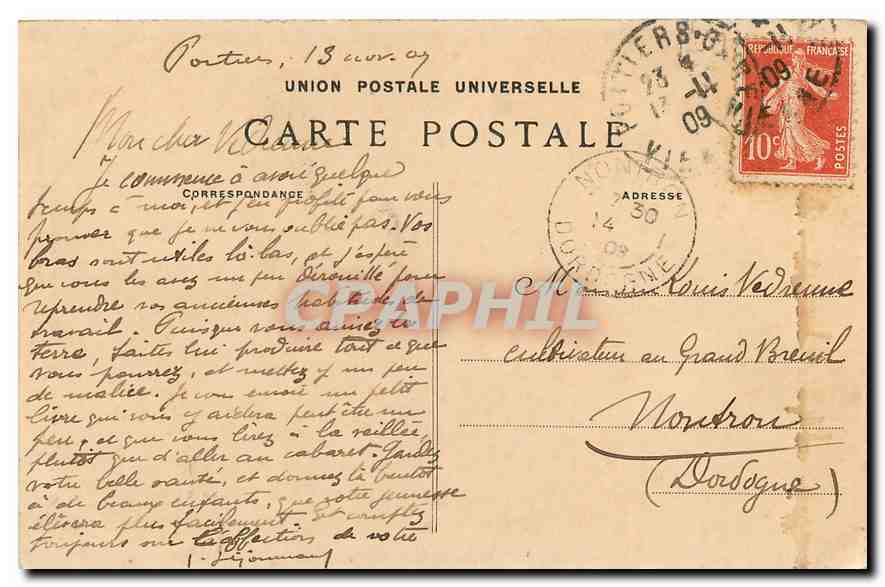 Poitiers, 13 nov. 09
UNION POSTALE UNIVERSELLE
CARTE POSTALE
Mon cher Vedrenne
Je commence à avoir quelque
CORRESPONDANCE
temps à moi, et j'en profite pour vous
prouver que je ne vous oublie pas. Vos
bras sont utiles là-bas, et j'espère
que vous les avez un peu dérouillé pour
reprendre vos anciennes habitudes de
travail. Puisque vous aimez la
terre, faites lui produire tout ce que
vous pourrez, et mettez y un peu
de malice. Je vous envoie un petit
livre qui vous y aidera peut être un
peu, et que vous lirez à la veillée,
plutôt que d'aller au cabaret. Gardez
votre belle santé, et donnez la bientôt
à de beaux enfants, que votre jeunesse
élèvera plus facilement. Et comptez
toujours sur l'affection de votre
ADRESSE
Louis Vedrenne
cultivateur au Grand Breuil
Nontron
(Dordogne)
REPUBLIQUE FRANÇAISE
10c
POSTES
POITIERS
23
13 -11
09
VIENNE
NONTRON
7 30
14
09
DORDOGNE
CPAPHIL